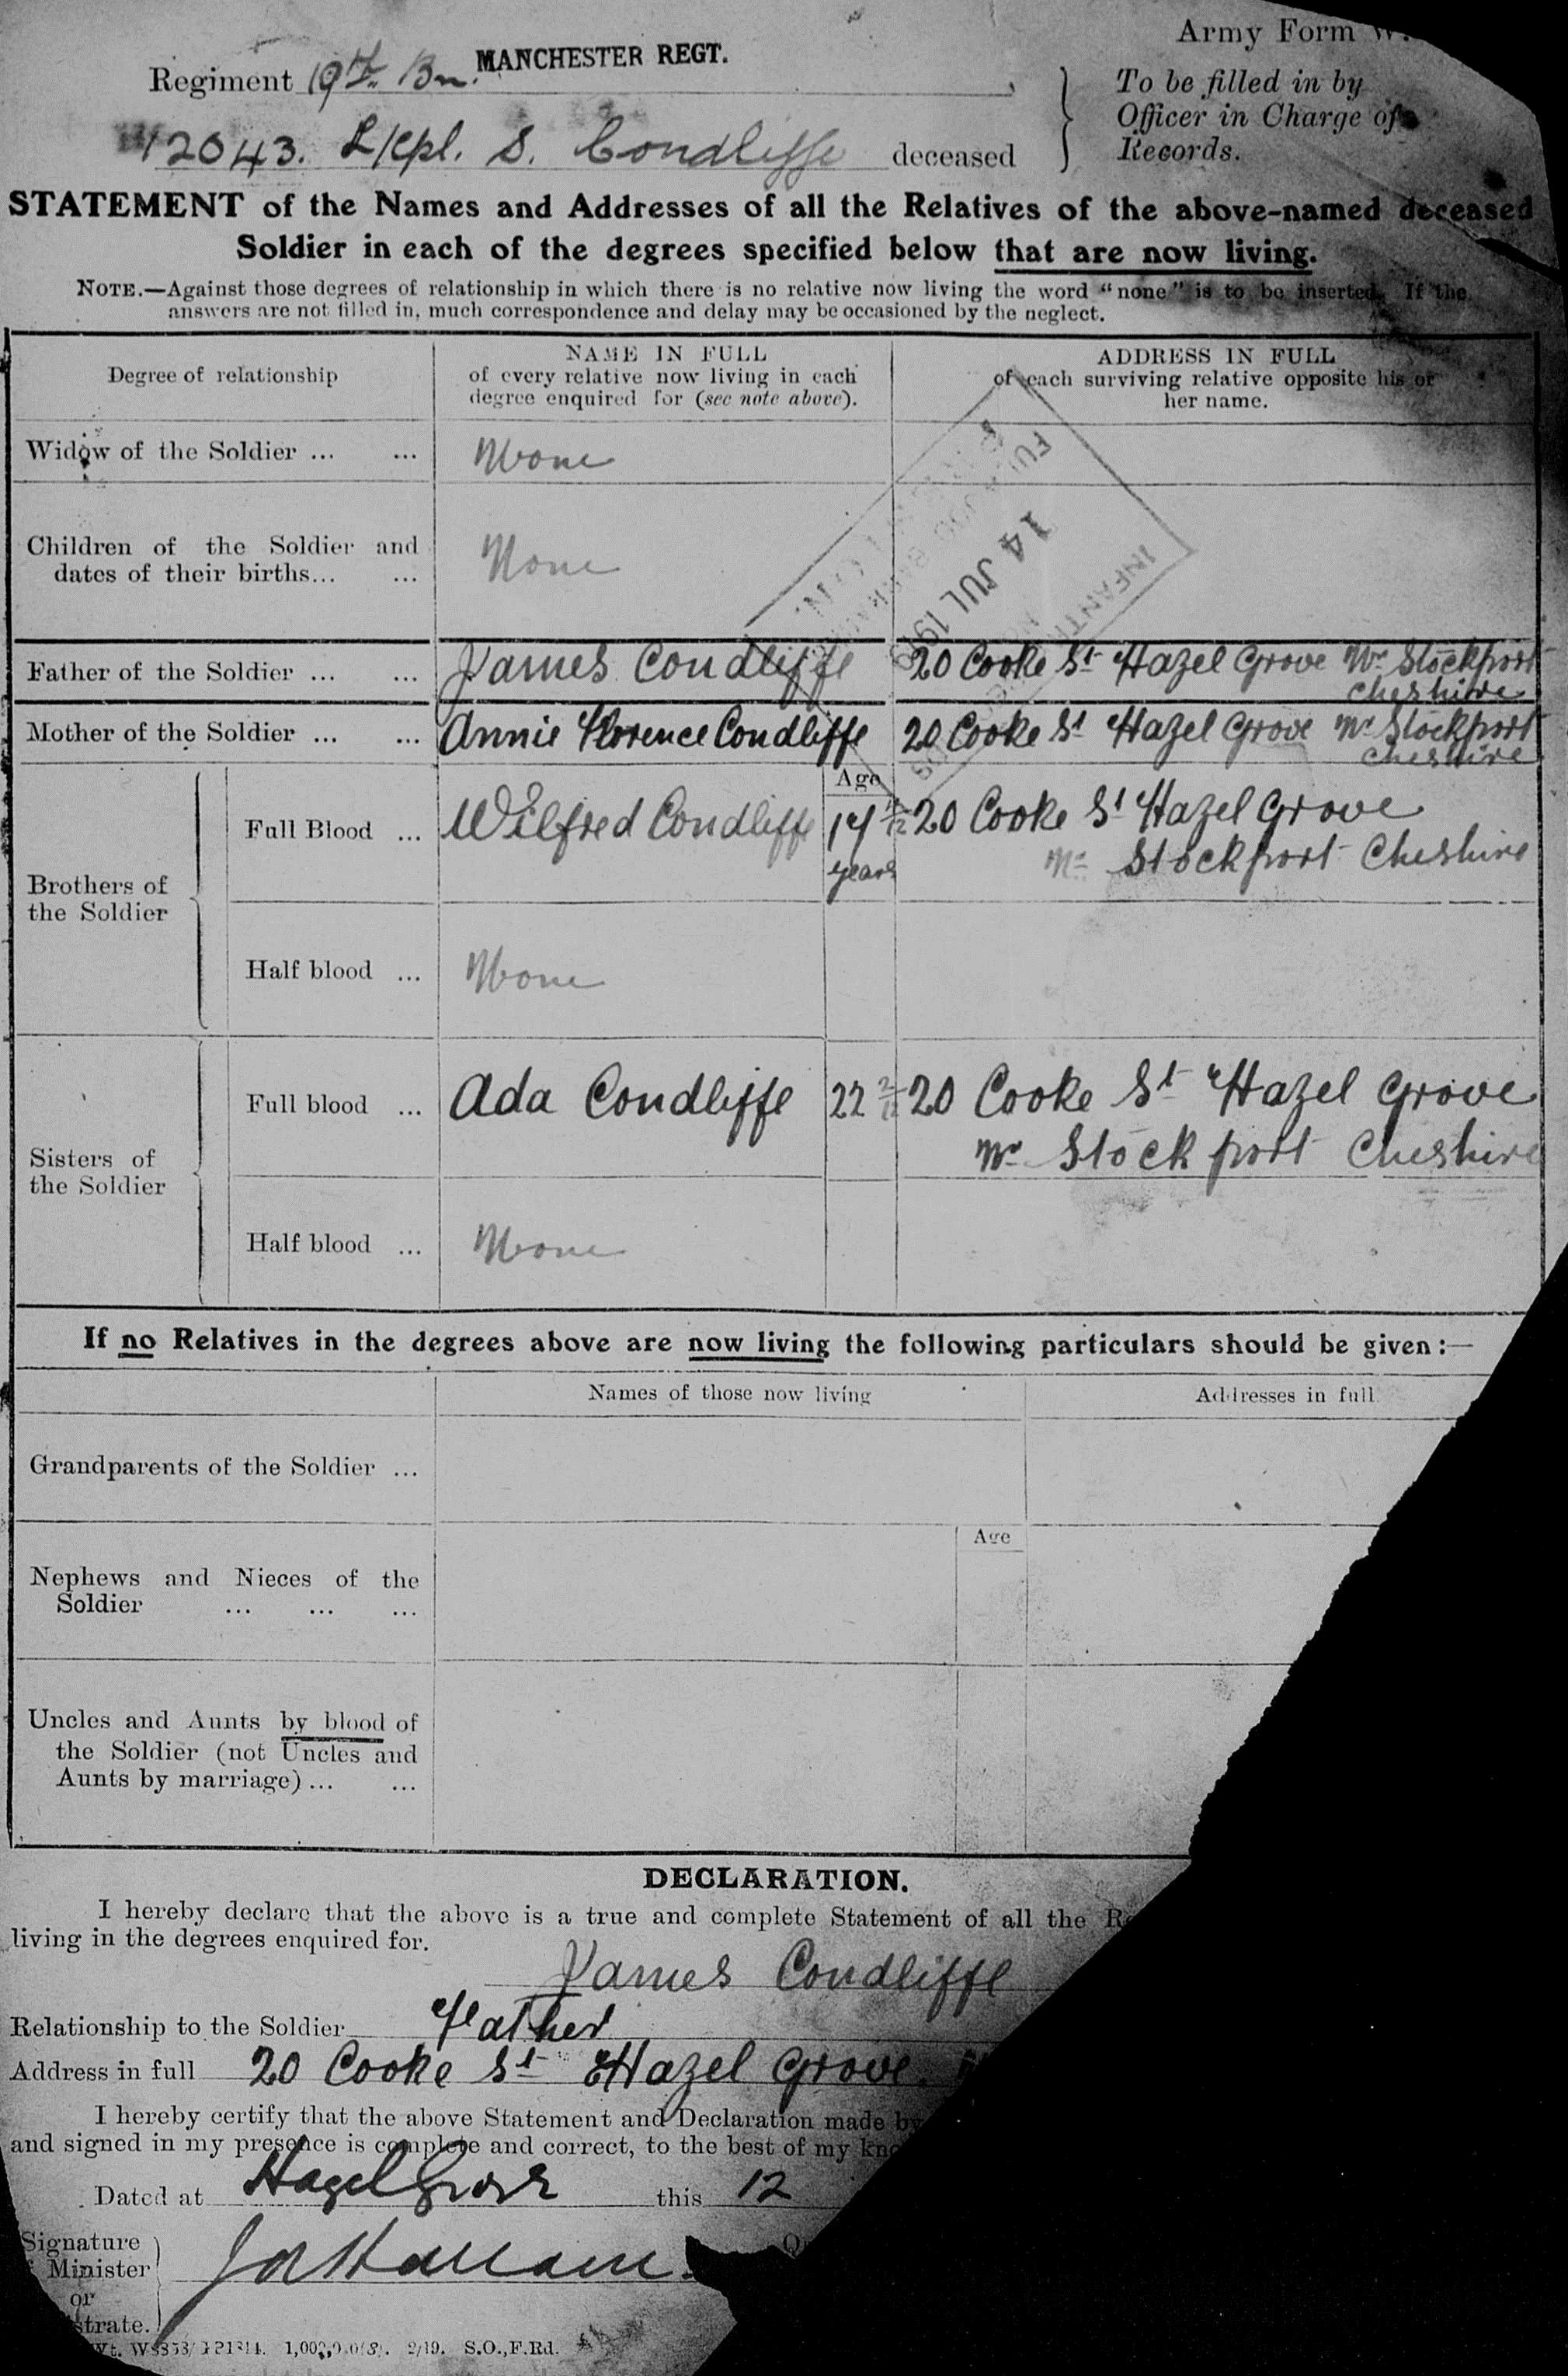 Army Form W.
Regiment 19th Bn. MANCHESTER REGT.
To be filled in by
Officer in Charge of
Records.
12043. L/Cpl. S. Condliffe deceased
STATEMENT of the Names and Addresses of all the Relatives of the above-named deceased
Soldier in each of the degrees specified below that are now living.
NOTE.—Against those degrees of relationship in which there is no relative now living the word "none" is to be inserted. If the
answers are not filled in, much correspondence and delay may be occasioned by the neglect.
Degree of relationship
NAME IN FULL
of every relative now living in each
degree enquired for (see note above).
ADDRESS IN FULL
of each surviving relative opposite his or
her name.
Widow of the Soldier ... ... None
Children of the Soldier and
dates of their births... ... None
14 JUL 19
INFANTRY
Father of the Soldier ... ... James Condliffe 20 Cooke St Hazel Grove Nr Stockport
Cheshire
Mother of the Soldier ... ... Annie Florence Condliffe 20 Cooke St Hazel Grove Nr Stockport
Cheshire
Age
Brothers of
the Soldier
Full Blood ... Wilfred Condliffe 17 years 20 Cooke St Hazel Grove
Nr Stockport Cheshire
Half blood ... None
Sisters of
the Soldier
Full blood ... Ada Condliffe 22 2/12 20 Cooke St Hazel Grove
Nr Stockport Cheshire
Half blood ... None
If no Relatives in the degrees above are now living the following particulars should be given:—
Names of those now living
Addresses in full
Grandparents of the Soldier ...
Age
Nephews and Nieces of the
Soldier ... ... ...
Uncles and Aunts by blood of
the Soldier (not Uncles and
Aunts by marriage) ... ...
DECLARATION.
I hereby declare that the above is a true and complete Statement of all the
living in the degrees enquired for.
James Condliffe
Relationship to the Soldier Father
Address in full 20 Cooke St Hazel Grove.
I hereby certify that the above Statement and Declaration made by
and signed in my presence is complete and correct, to the best of my
Dated at Hazel Grove this 12
Signature
Minister
or
strate.
2/19. S.O.,F.Rd.